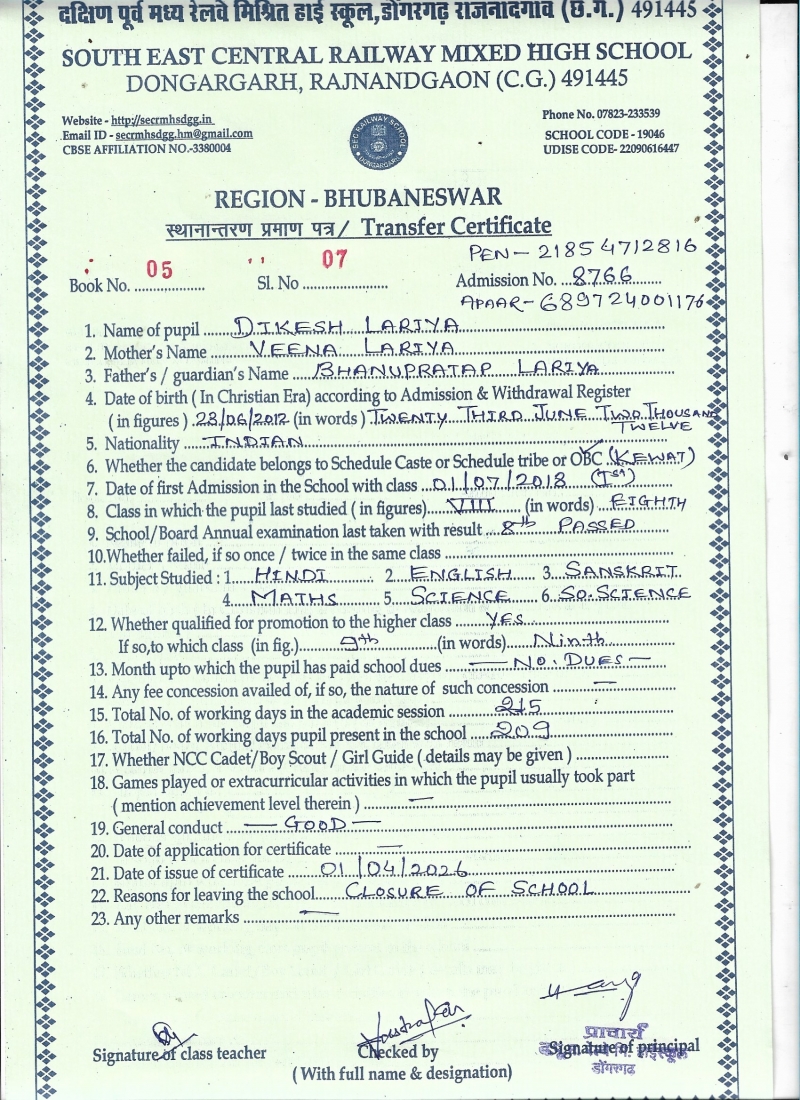 दक्षिण पूर्व मध्य रेलवे मिश्रित हाई स्कूल,डोंगरगढ़ राजनादगांव (छ.ग.) 491445
SOUTH EAST CENTRAL RAILWAY MIXED HIGH SCHOOL
DONGARGARH, RAJNANDGAON (C.G.) 491445
Website - http://secrmhsdgg.in
Email ID - secrmhsdgg.hm@gmail.com
CBSE AFFILIATION NO.-3380004
SEC RAILWAY SCHOOL
DONGARGARH
Phone No. 07823-233539
SCHOOL CODE - 19046
UDISE CODE- 22090616447
REGION - BHUBANESWAR
स्थानान्तरण प्रमाण पत्र / Transfer Certificate
PEN - 21854712816
Book No. 05 Sl. No 07 Admission No. 8766
APAAR - 689724001176
1. Name of pupil DIKESH LARIYA
2. Mother's Name VEENA LARIYA
3. Father's / guardian's Name BHANUPRATAP LARIYA
4. Date of birth ( In Christian Era) according to Admission & Withdrawal Register
( in figures ) 23/06/2012 (in words ) TWENTY THIRD JUNE TWO THOUSAND TWELVE
5. Nationality INDIAN
6. Whether the candidate belongs to Schedule Caste or Schedule tribe or OBC (KEWAT)
7. Date of first Admission in the School with class 01/07/2018 (Ist)
8. Class in which the pupil last studied ( in figures) VIII (in words) EIGHTH
9. School/Board Annual examination last taken with result 8th PASSED
10.Whether failed, if so once / twice in the same class
11. Subject Studied : 1. HINDI 2 ENGLISH 3. SANSKRIT
4. MATHS 5. SCIENCE 6. SO. SCIENCE
12. Whether qualified for promotion to the higher class YES
If so,to which class (in fig.) 9th (in words) Ninth
13. Month upto which the pupil has paid school dues — NO. DUES —
14. Any fee concession availed of, if so, the nature of such concession —
15. Total No. of working days in the academic session 215
16. Total No. of working days pupil present in the school 209
17. Whether NCC Cadet/Boy Scout / Girl Guide ( details may be given )
18. Games played or extracurricular activities in which the pupil usually took part
( mention achievement level therein ) —
19. General conduct — GOOD —
20. Date of application for certificate —
21. Date of issue of certificate 01/04/2026
22. Reasons for leaving the school CLOSURE OF SCHOOL
23. Any other remarks —
प्राचार्य
Signature of class teacher Checked by Signature of principal
हाईस्कूल
डोंगरगढ
( With full name & designation)